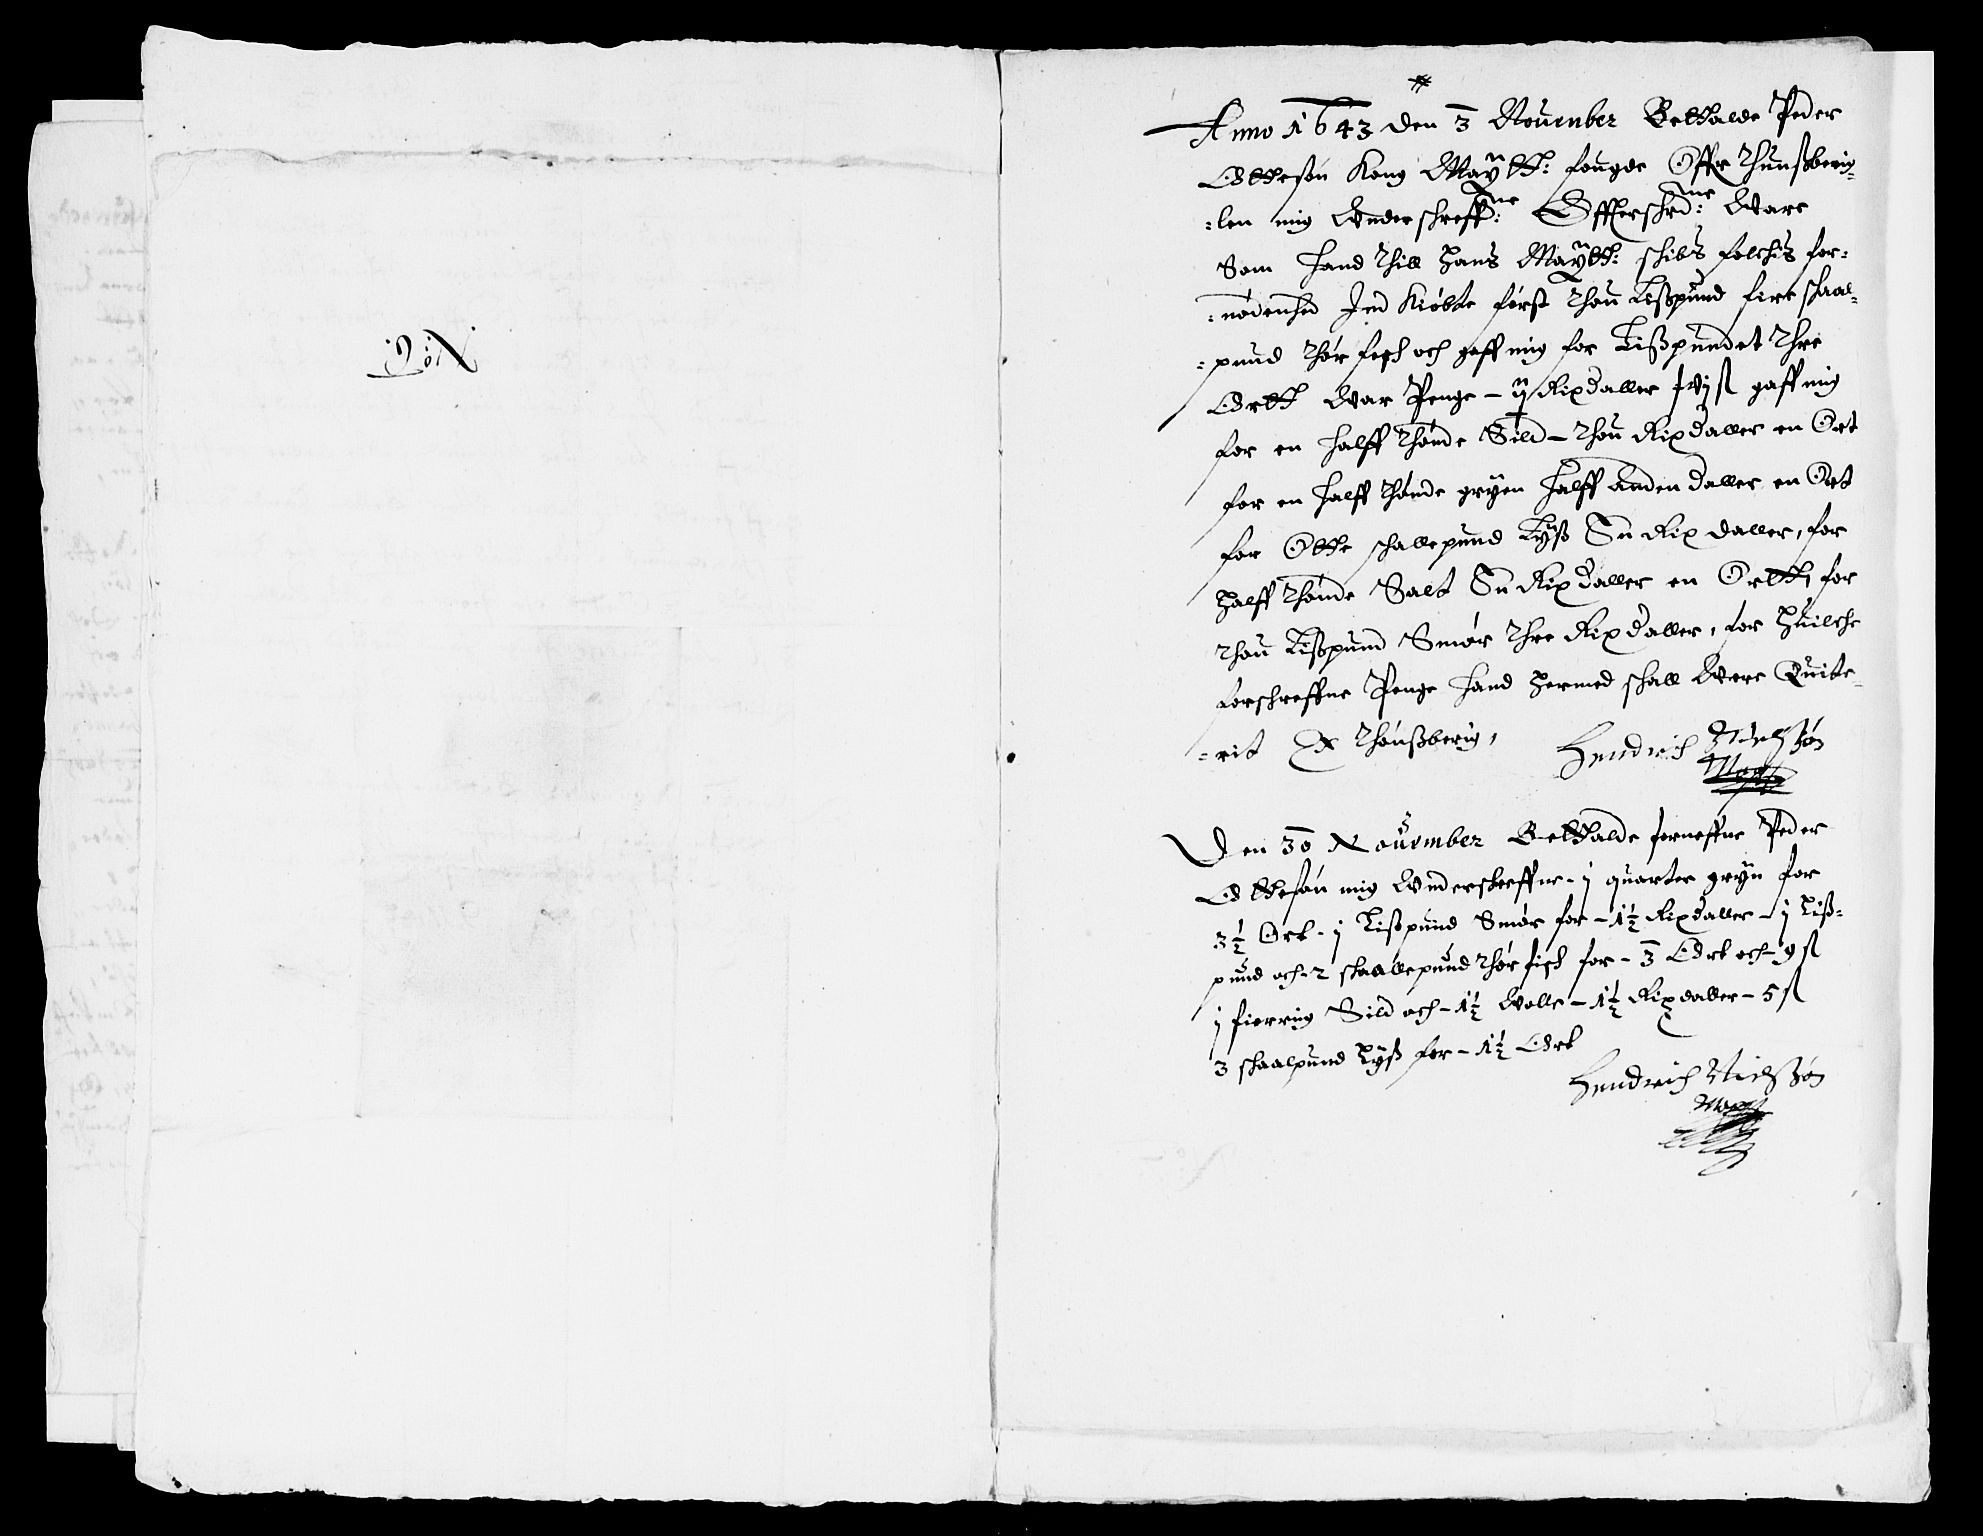 No: 6:
Anno 1643 den 3 Nouember Betthalde Peder
Ottesøn Kong Maÿtt: fougde Offr Thunßberig-
-len mig Vnderschreffne: Effterschrne: Vare
Som hand Thill Hans Maÿtt: schibs folchis for-
-nødenhed Ind Kiøbte først Thou Lißpund fire skaal-
-pund Thør fisch och gaff mig for Lißpundet Thre
Ortt Var Penge - ij Rixdaller xvj ß gaff mig
for en halff Thønde Sild - Thou Rixdaller en Ort
for en halff Thønde gryen halff anden daller en Ort
for Otte schallepund Lyß En Rix daller, for
Halff Thønde Salt En Rix daller en Ortt, for
Thou Lißpund Smør Thre Rix daller, for Huilche
forschreffne Penge hand Hermed schall Vere Quite-
-rit Ex Thønßberig,
Hendrich Nielßøn
Den 30 Nouember Betthalde forneffne Peder
Ottesøn mig Vnderskreffne - j quarter gryn for
3½ Ort - j Lißpund Smør for - 1½ Rixdaller - j Liß-
pund och - 2 skaallepund Thør fisch for - 3 Ort och - 9 ß
j fierring Sild och - 1½ Volle - 1½ Rixdaller - 5 ß
3 skaalpund Lyß for - 1½ Ort
Hendrich Nielßøn